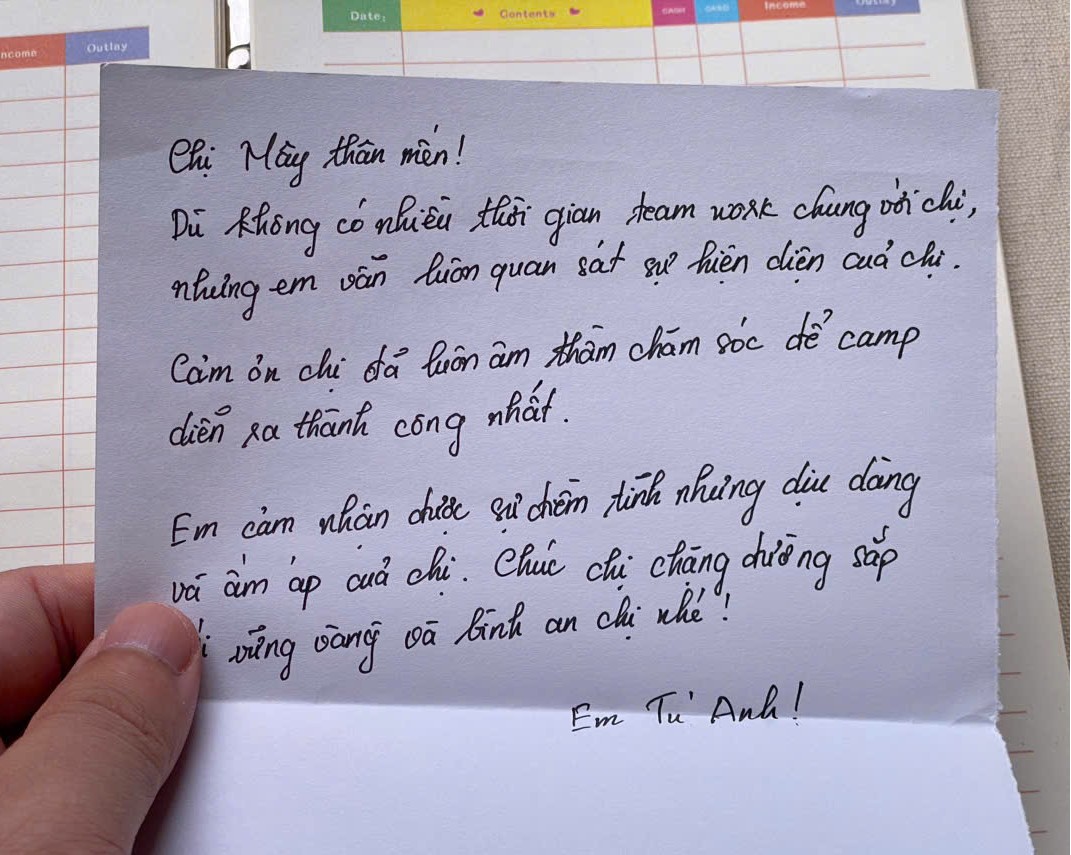 ncome Outlay
Date: Contents CASH CARD Income Outlay
Chị Mây thân mến!
Dù không có nhiều thời gian team work chung với chị,
nhưng em vẫn luôn quan sát sự hiện diện của chị.
Cảm ơn chị đã luôn âm thầm chăm sóc để camp
diễn ra thành công nhất.
Em cảm nhận được sự điềm tĩnh nhưng dịu dàng
và ấm áp của chị. Chúc chị chặng đường sắp
i vững vàng và bình an chị nhé!
Em Tú Anh!